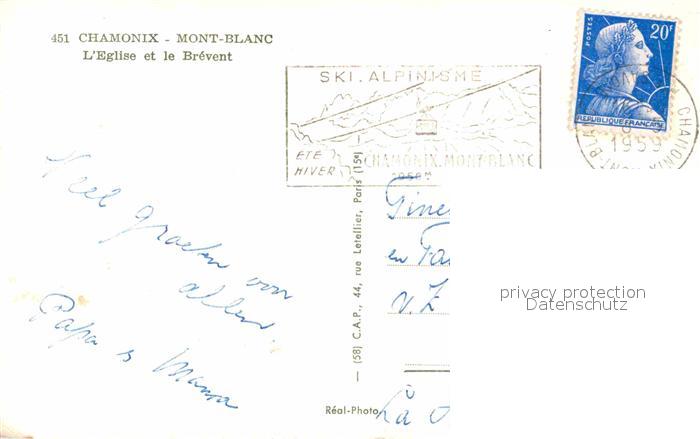 451 CHAMONIX - MONT-BLANC
L'Eglise et le Brévent
SKI. ALPINISME
ETE
HIVER
CHAMONIX. MONT-BLANC
POSTES
20F
REPUBLIQUE FRANÇAISE
CHAMONIX MONT-BLANC
1959
Veel groeten van
allen.
Papa & Mama
— (58) C.A.P., 44, rue Letellier, Paris (15e)
Réal-Photo
en
v. Z
La
privacy protection
Datenschutz